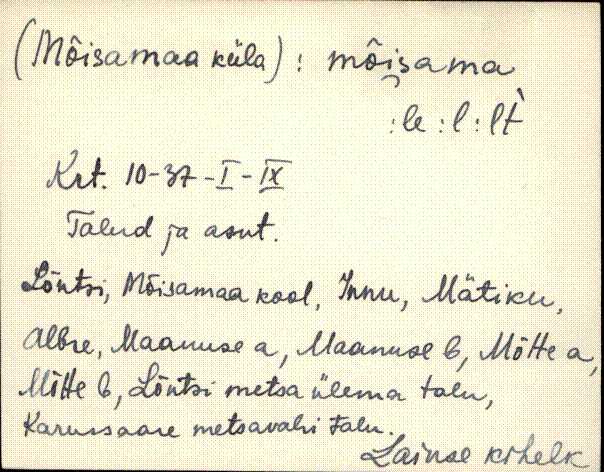 (Mõisamaa küla): mõisama
:le :l :lt
Krt. 10-37-I-IX
Talud ja asut.
Lõntsi, Mõisamaa kool, Innu, Mätiku,
Albre, Maanuse a, Maanuse b, Mõtte a,
Mõtte b, Lõntsi metsa ülema talu,
Karussaare metsavahi talu.
Laiuse kihelk